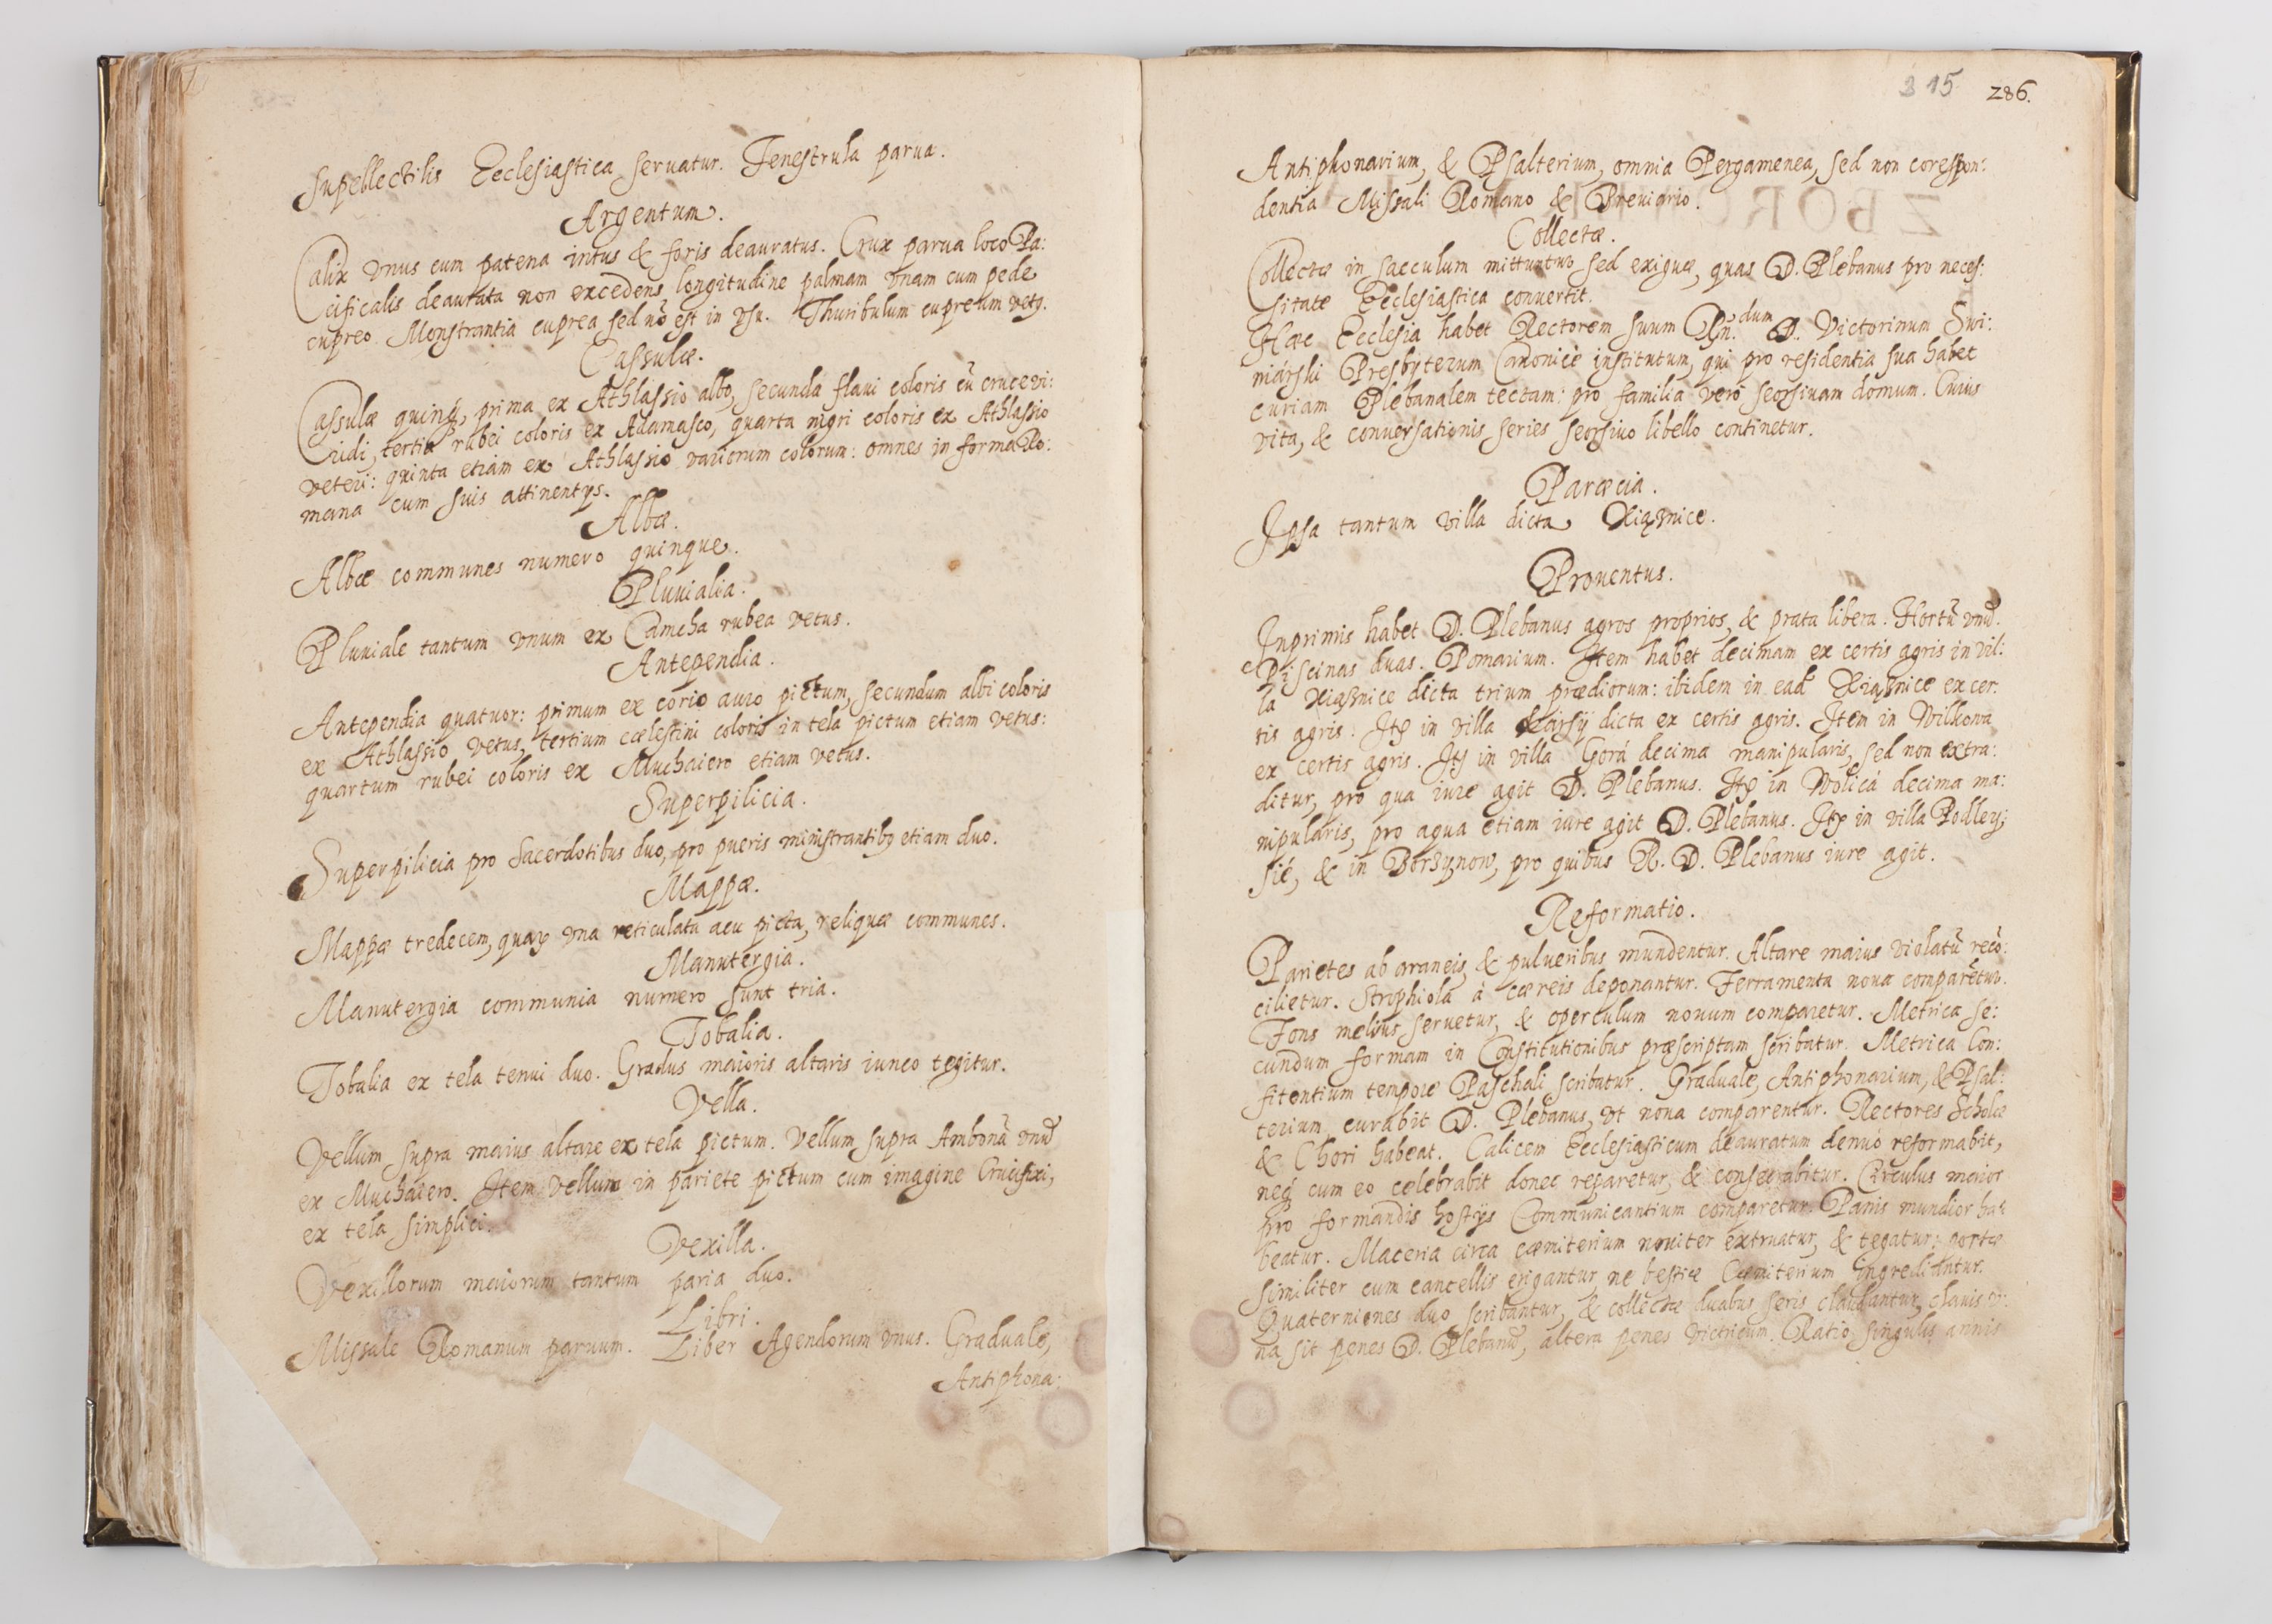 Supellectilis Ecclesiastica seruatur. Fenestrula parua.
Argentum.
Calix vnus cum patena intus & foris deauratus. Crux parua loco Pa:
cificalis deaurata non excedens longitudine palmam vnam cum pede
cupreo. Monstrantia cuprea sed nõ est in vsu. Thuribulum cupreum vetꝰ.
Cassulæ.
Cassulæ quinqꝫ, prima ex Athlassio albo, secunda flaui coloris cũ cruce vi:
ridi, tertia rubei coloris ex Adamasco, quarta nigri coloris ex Athlassio
veteri: quinta etiam ex Athlassio variorum colorum: omnes in forma Ro:
mana cum suis attinentijs.
Albæ.
Albæ communes numero quinque.
Pluuialia.
Pluuiale tantum vnum ex Camcha rubea vetus.
Antependia.
Antependia quatuor: primum ex corio auro pictum, secundum albi coloris
ex Athlassio vetus, tertium cælestini coloris in tela pictum etiam vetus:
quartum rubei coloris ex Muchaiero etiam vetus.
Superpilicia.
Superpilicia pro Sacerdotibus duo, pro pueris ministrantibꝰ etiam duo.
Mappæ.
Mappæ tredecem, quaꝝ vna reticulata acu picta, reliquæ communes.
Manutergia.
Manutergia communia numero sunt tria.
Tobalia.
Tobalia ex tela tenui duo. Gradus maioris altaris iunco tegitur.
Vella.
Vellum supra maius altare ex tela pictum. Vellum supra Ambonã vnũ
ex Muchaiero. Item vellum in pariete pictum cum imagine Crucifixi,
ex tela simplici.
Vexilla.
Vexillorum maiorum tantum paria duo.
Libri.
Missale Romanum paruum. Liber Agendorum vnus. Graduale,
Antiphona:
315 286.
Antiphonarium, & Psalterium, omnia Pergamenea, sed non corespon:
dentia Missali Romano & Breuiario.
Collectæ.
Collectæ in sæculum mittuntur sed exiguæ, quas D. Plebanus pro neces:
sitate Ecclesiastica conuertit.
Hæc Ecclesia habet Rectorem suum D. Victorinum Swi:
niarski Presbyterum Canonicè institutum, qui pro residentia sua habet
curiam Plebanalem tectam: pro familia verò seorsiuam domum. Cuius
vita, & conuersationis series seorsiuo libello continetur.
Parœcia.
Ipsa tantum villa dicta Xiąznice.
Prouentus.
Inprimis habet D. Plebanus agros proprios, & prata libera. Hortũ vnũ.
Piscinas duas. Pomarium. Item habet decimam ex certis agris in vil:
la Xiąznice dicta trium prædiorum: ibidem in ead Xiąznice ex cer:
tis agris. Itẽ in villa dicta ex certis agris. Item in Wilkowa
ex certis agris. Itẽ in villa Gorá decima manipularis, sed non extra:
ditur, pro qua iure agit D. Plebanus. Itẽ in Wolicá decima ma:
nipularis, pro aqua etiam iure agit D. Plebanus. Itẽ in villa Podley:
sié, & in Borzynow, pro quibus R. D. Plebanus iure agit.
Reformatio.
Parietes ab araneis, & pulueribus mundentur. Altare maius violatũ recõ:
cilietur. Strophiola à cæreis deponantur. Ferramenta noua comparẽtur.
Fons melius seruetur, & operculum nouum comparetur. Metrica se:
cundum formam in Constitutionibus præscriptam scribatur. Metrica Con:
fitentium tempore Paschali scribatur. Graduale, Antiphonarium, & Psal:
terium, curabit D. Plebanus, vt noua comparentur. Rectores Scholæ
& Chori habeat. Calicem Ecclesiasticum deauratum denuò reformabit,
neqꝫ cum eo celebrabit donec reparetur, & consecrabitur. Circulus maior
pro formandis hostijs Communicantium comparetur. Panis mundior ha:
beatur. Maceria circa cæmiterium nouiter extruatur, & tegatur: portæ
similiter cum cancellis erigantur, ne bestiæ Cæmiterium ingrediantur.
Quaterniones duo scribantur, & collectæ duabus seris claudantur, clauis v:
na sit penes D. Plebanũ, altera penes victricum. Ratio singulis annis